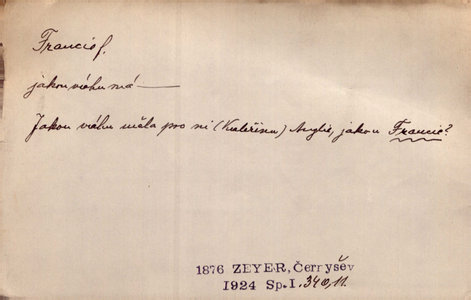 Francie f.
jakou váhu má —
Jakou váhu měla pro ni (Kateřinu) Anglie, jakou Francie?
1876 ZEYER, Černyšev
1924 Sp.I. 340, 11.